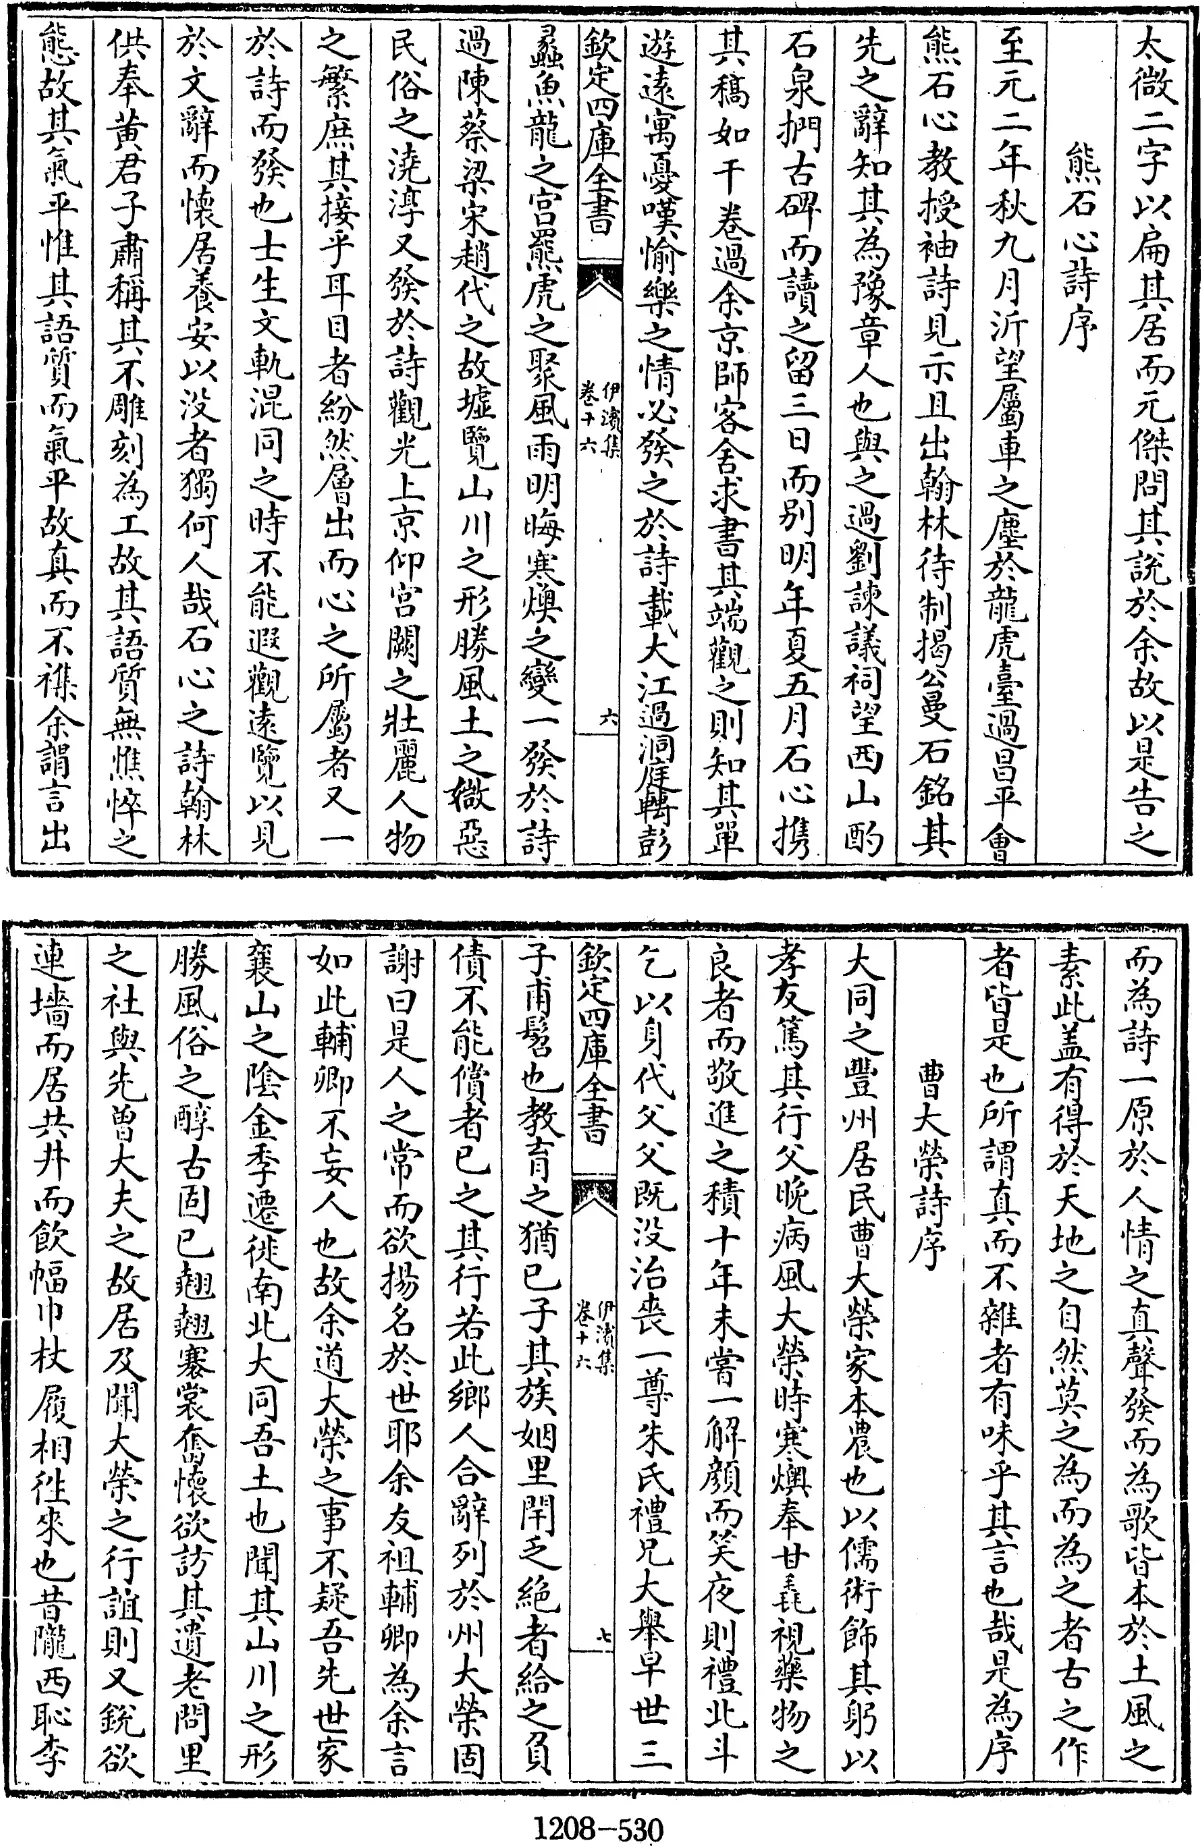 太微二字以扁其居而元傑問其說於余故以是告之
熊石心詩序
至元二年秋九月沂望屬車之塵於龍虎臺過昌平會
熊石心教授袖詩見示且出翰林待制揭公曼石銘其
先之辭知其為豫章人也與之過劉諫議祠望西山酌
石泉捫古碑而讀之留三日而别明年夏五月石心携
其稿如干卷過余京師客舍求書其端觀之則知其單
遊遠寓憂嘆愉樂之情必發之於詩載大江過洞庭轉彭
欽定四庫全書
伊濱集
卷十六
六
蠡魚龍之宫羆虎之聚風雨明晦寒燠之變一發於詩
過陳蔡梁宋趙代之故墟覽山川之形勝風土之媺惡
民俗之澆淳又發於詩觀光上京仰宫闕之壯麗人物
之繁庶其接乎耳目者紛然層出而心之所屬者又一
於詩而發也士生文軌混同之時不能遐觀遠覽以見
於文辭而懷居養安以没者獨何人哉石心之詩翰林
供奉黄君子肅稱其不雕刻為工故其語質無憔悴之
態故其氣平惟其語質而氣平故真而不襍余謂言出
而為詩一原於人情之真聲發而為歌皆本於土風之
素此盖有得於天地之自然莫之為而為之者古之作
者皆是也所謂真而不雜者有味乎其言也哉是為序
曹大榮詩序
大同之豐州居民曹大榮家本農也以儒術飾其躬以
孝友篤其行父晚病風大榮時寒燠奉甘毳視藥物之
良者而敬進之積十年未嘗一解顔而笑夜則禮北斗
乞以身代父父既没治喪一尊朱氏禮兄大舉早世三
欽定四庫全書
伊濱集
卷十六
七
子甫髫也教育之猶已子其族姻里閈乏絶者給之負
債不能償者已之其行若此鄉人合辭列於州大榮固
謝曰是人之常而欲揚名於世耶余友祖輔卿為余言
如此輔卿不妄人也故余道大榮之事不疑吾先世家
襄山之陰金季遷徙南北大同吾土也聞其山川之形
勝風俗之醇古固已翹翹褰裳奮懷欲訪其遺老問里
之社與先曾大夫之故居及聞大榮之行誼則又銳欲
連墻而居共井而飲幅巾杖履相徃來也昔隴西恥李
1208-530